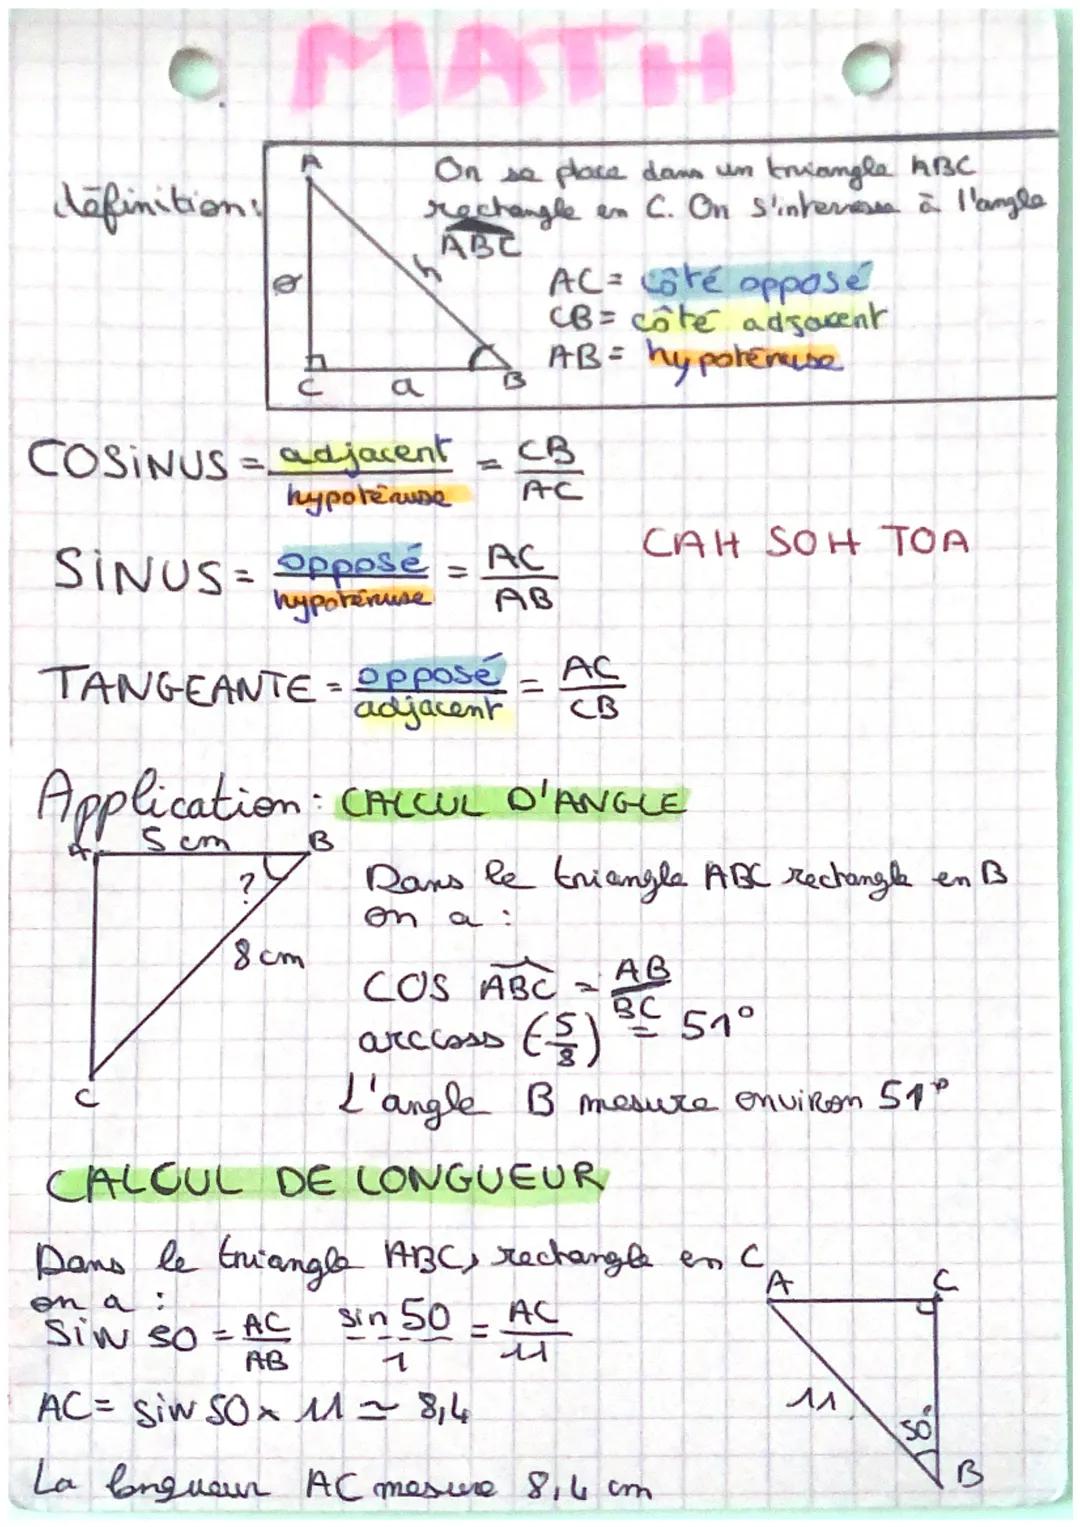 MATH
définition:
A
On se place dans un triangle ABC
rectangle en C. On s'interesse à l'angle
ABC
h
o
AC = côté opposé
CB = côté adjacent
AB = hypoténuse
C a B
COSINUS = adjacent / hypoténuse = CB / AC
CAH SOH TOA
SINUS = opposé / hypoténuse = AC / AB
TANGEANTE = opposé / adjacent = AC / CB
Application: CALCUL D'ANGLE
A 5 cm B
?
8 cm
C
Dans le triangle ABC rectangle en B
on a :
COS ABC = AB / BC
arccoss (5/8) ≃ 51°
L'angle B mesure environ 51°
CALCUL DE LONGUEUR
Dans le triangle ABC, rectangle en C
on a :
sin 50 = AC / AB sin 50 / 1 = AC / 11
AC = sin 50 x 11 ≃ 8,4
La longueur AC mesure 8,4 cm
A C
11
50°
B